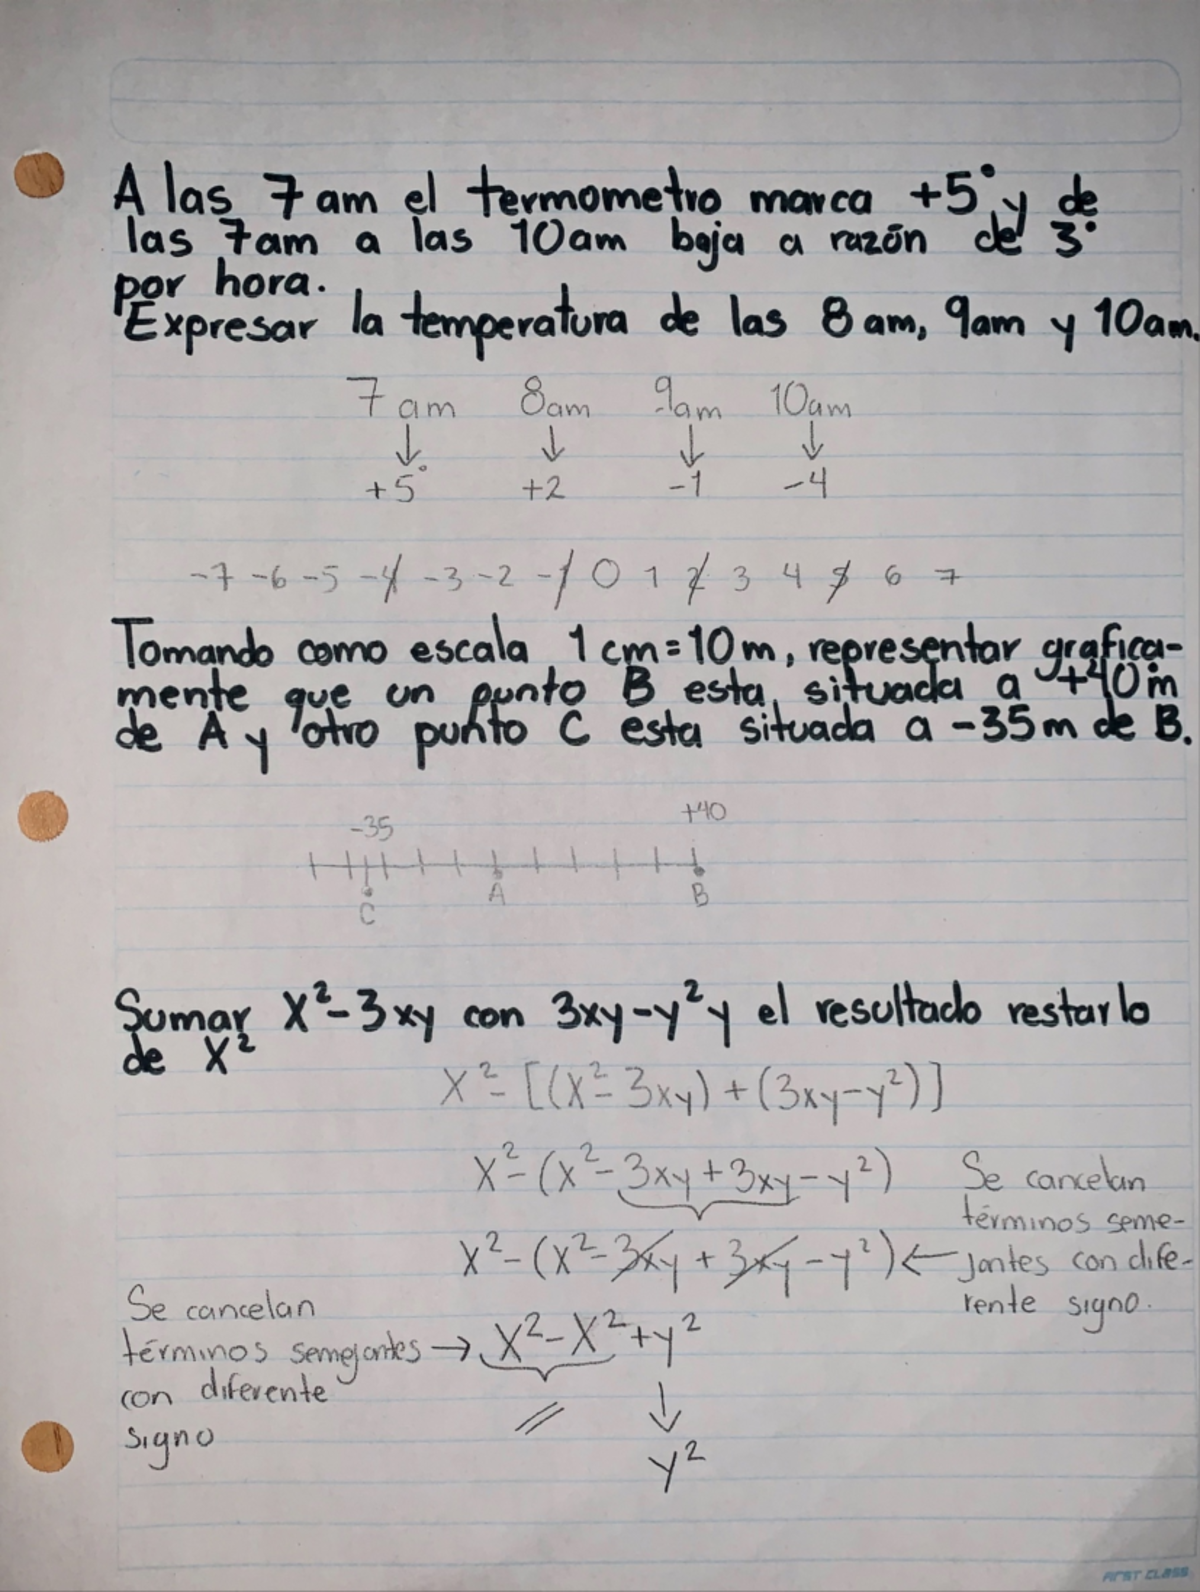 A las 7am el termometro marca +5° y de
las 7am a las 10am baja a razón de 3°
por hora.
Expresar la temperatura de las 8am, 9am y 10am.
7am 8am 9am 10am
↓ ↓ ↓ ↓
+5° +2 -1 -4
-7 -6 -5 -4 -3 -2 -1 0 1 2 3 4 5 6 7
Tomando como escala 1cm=10m, representar grafica-
mente que un punto B esta situada a +40m
de A y otro punto C esta situada a -35m de B.
-35 +40
A B
C
Sumar X²-3xy con 3xy-y² y el resultado restarlo
de X²
X²-[(X²-3xy)+(3xy-y²)]
X²-(x²-3xy+3xy-y²) Se cancelan
términos seme-
X²-(x²-3xy+3xy-y²) ← jantes con dife-
rente signo.
Se cancelan
términos semejantes → X²-X²+y²
con diferente ↓
signo
y²
FIRST CLASS